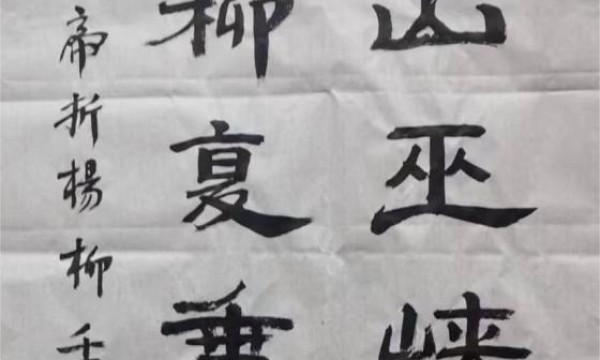 山巫峡
柳复垂
帝折楊柳